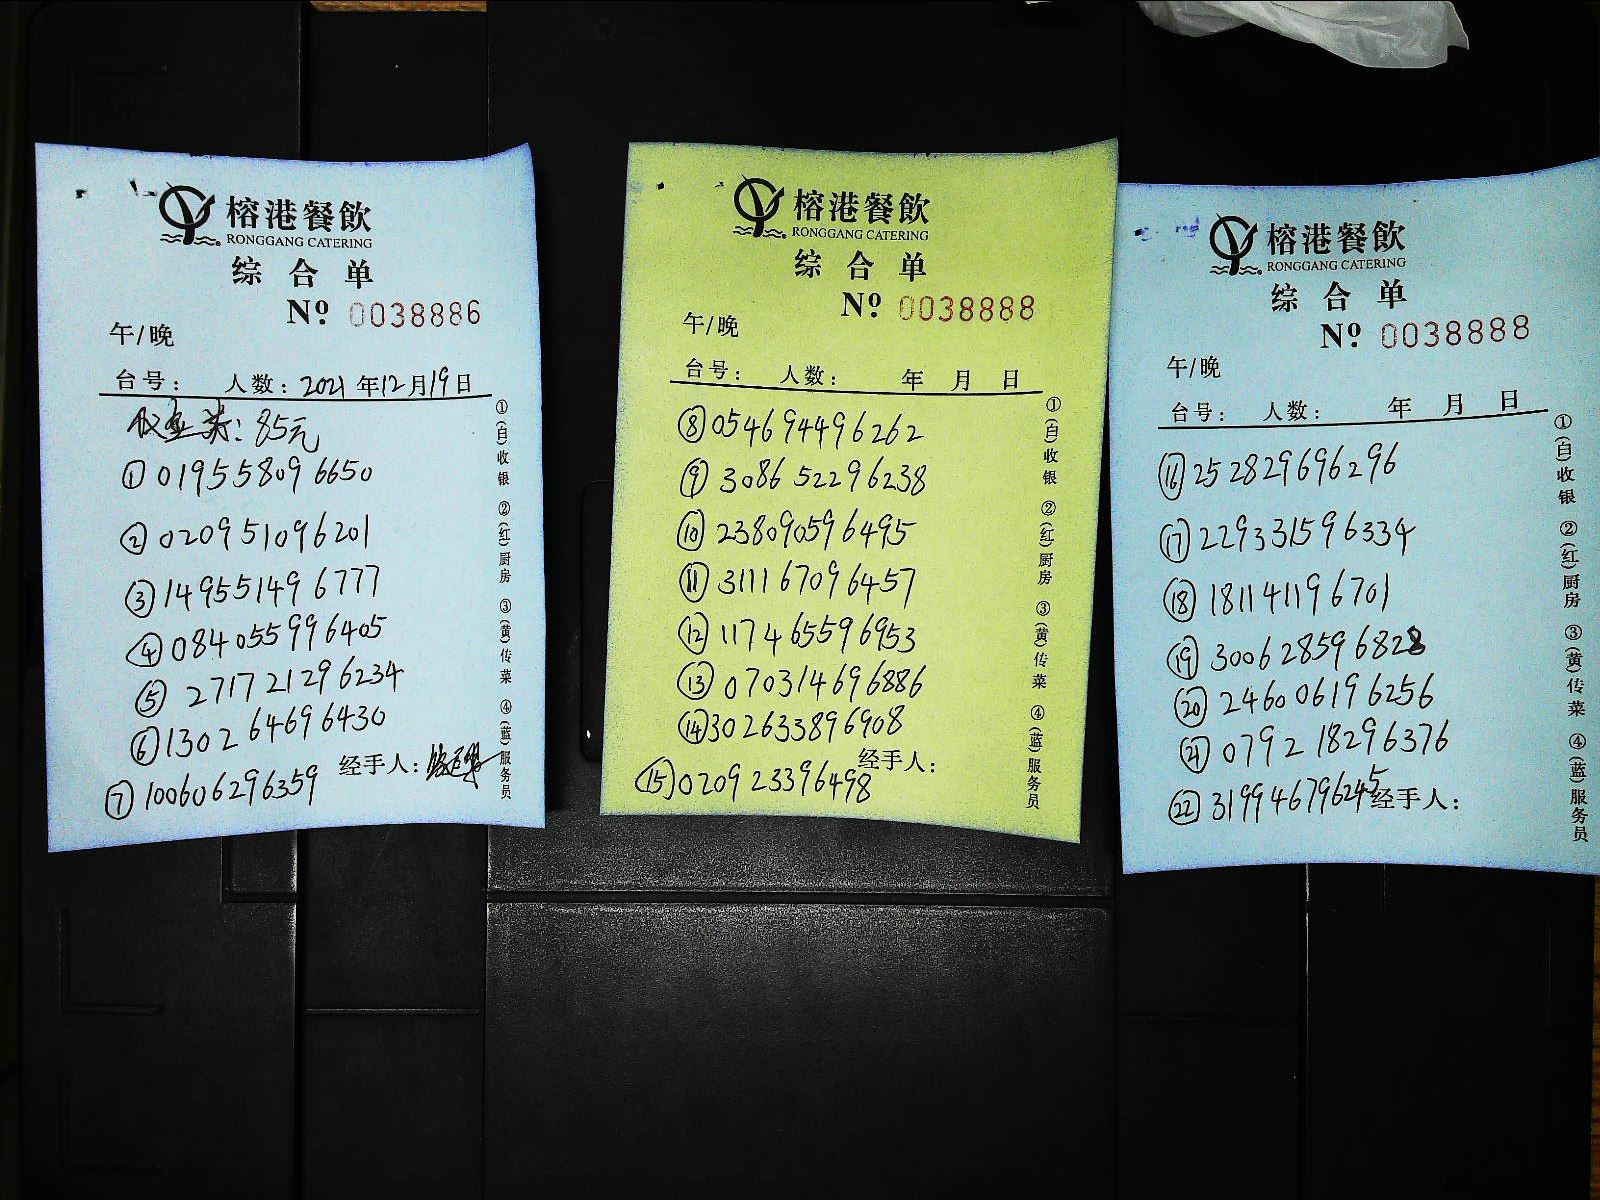 榕港餐飲
RONGGANG CATERING
综合单
Nº 0038886
午/晚
台号: 人数: 2021年12月19日
85元
① 019558096650
② 020951096201
③ 149551496777
④ 084055996405
⑤ 271721296234
⑥ 130264696430
经手人:
⑦ 100606296359
①(白)收银 ②(红)厨房 ③(黄)传菜 ④(蓝)服务员
榕港餐飲
RONGGANG CATERING
综合单
Nº 0038888
午/晚
台号: 人数: 年 月 日
⑧ 054694496262
⑨ 308652296238
⑩ 238090596495
⑪ 311167096457
⑫ 117465596953
⑬ 070314696886
⑭ 302633896908
经手人:
⑮ 020923396498
①(白)收银 ②(红)厨房 ③(黄)传菜 ④(蓝)服务员
榕港餐飲
RONGGANG CATERING
综合单
Nº 0038888
午/晚
台号: 人数: 年 月 日
⑯ 252829696296
⑰ 229331596334
⑱ 181141196701
⑲ 300628596828
⑳ 246006196256
㉑ 079218296376
㉒ 319946796245 经手人:
①(白)收银 ②(红)厨房 ③(黄)传菜 ④(蓝)服务员